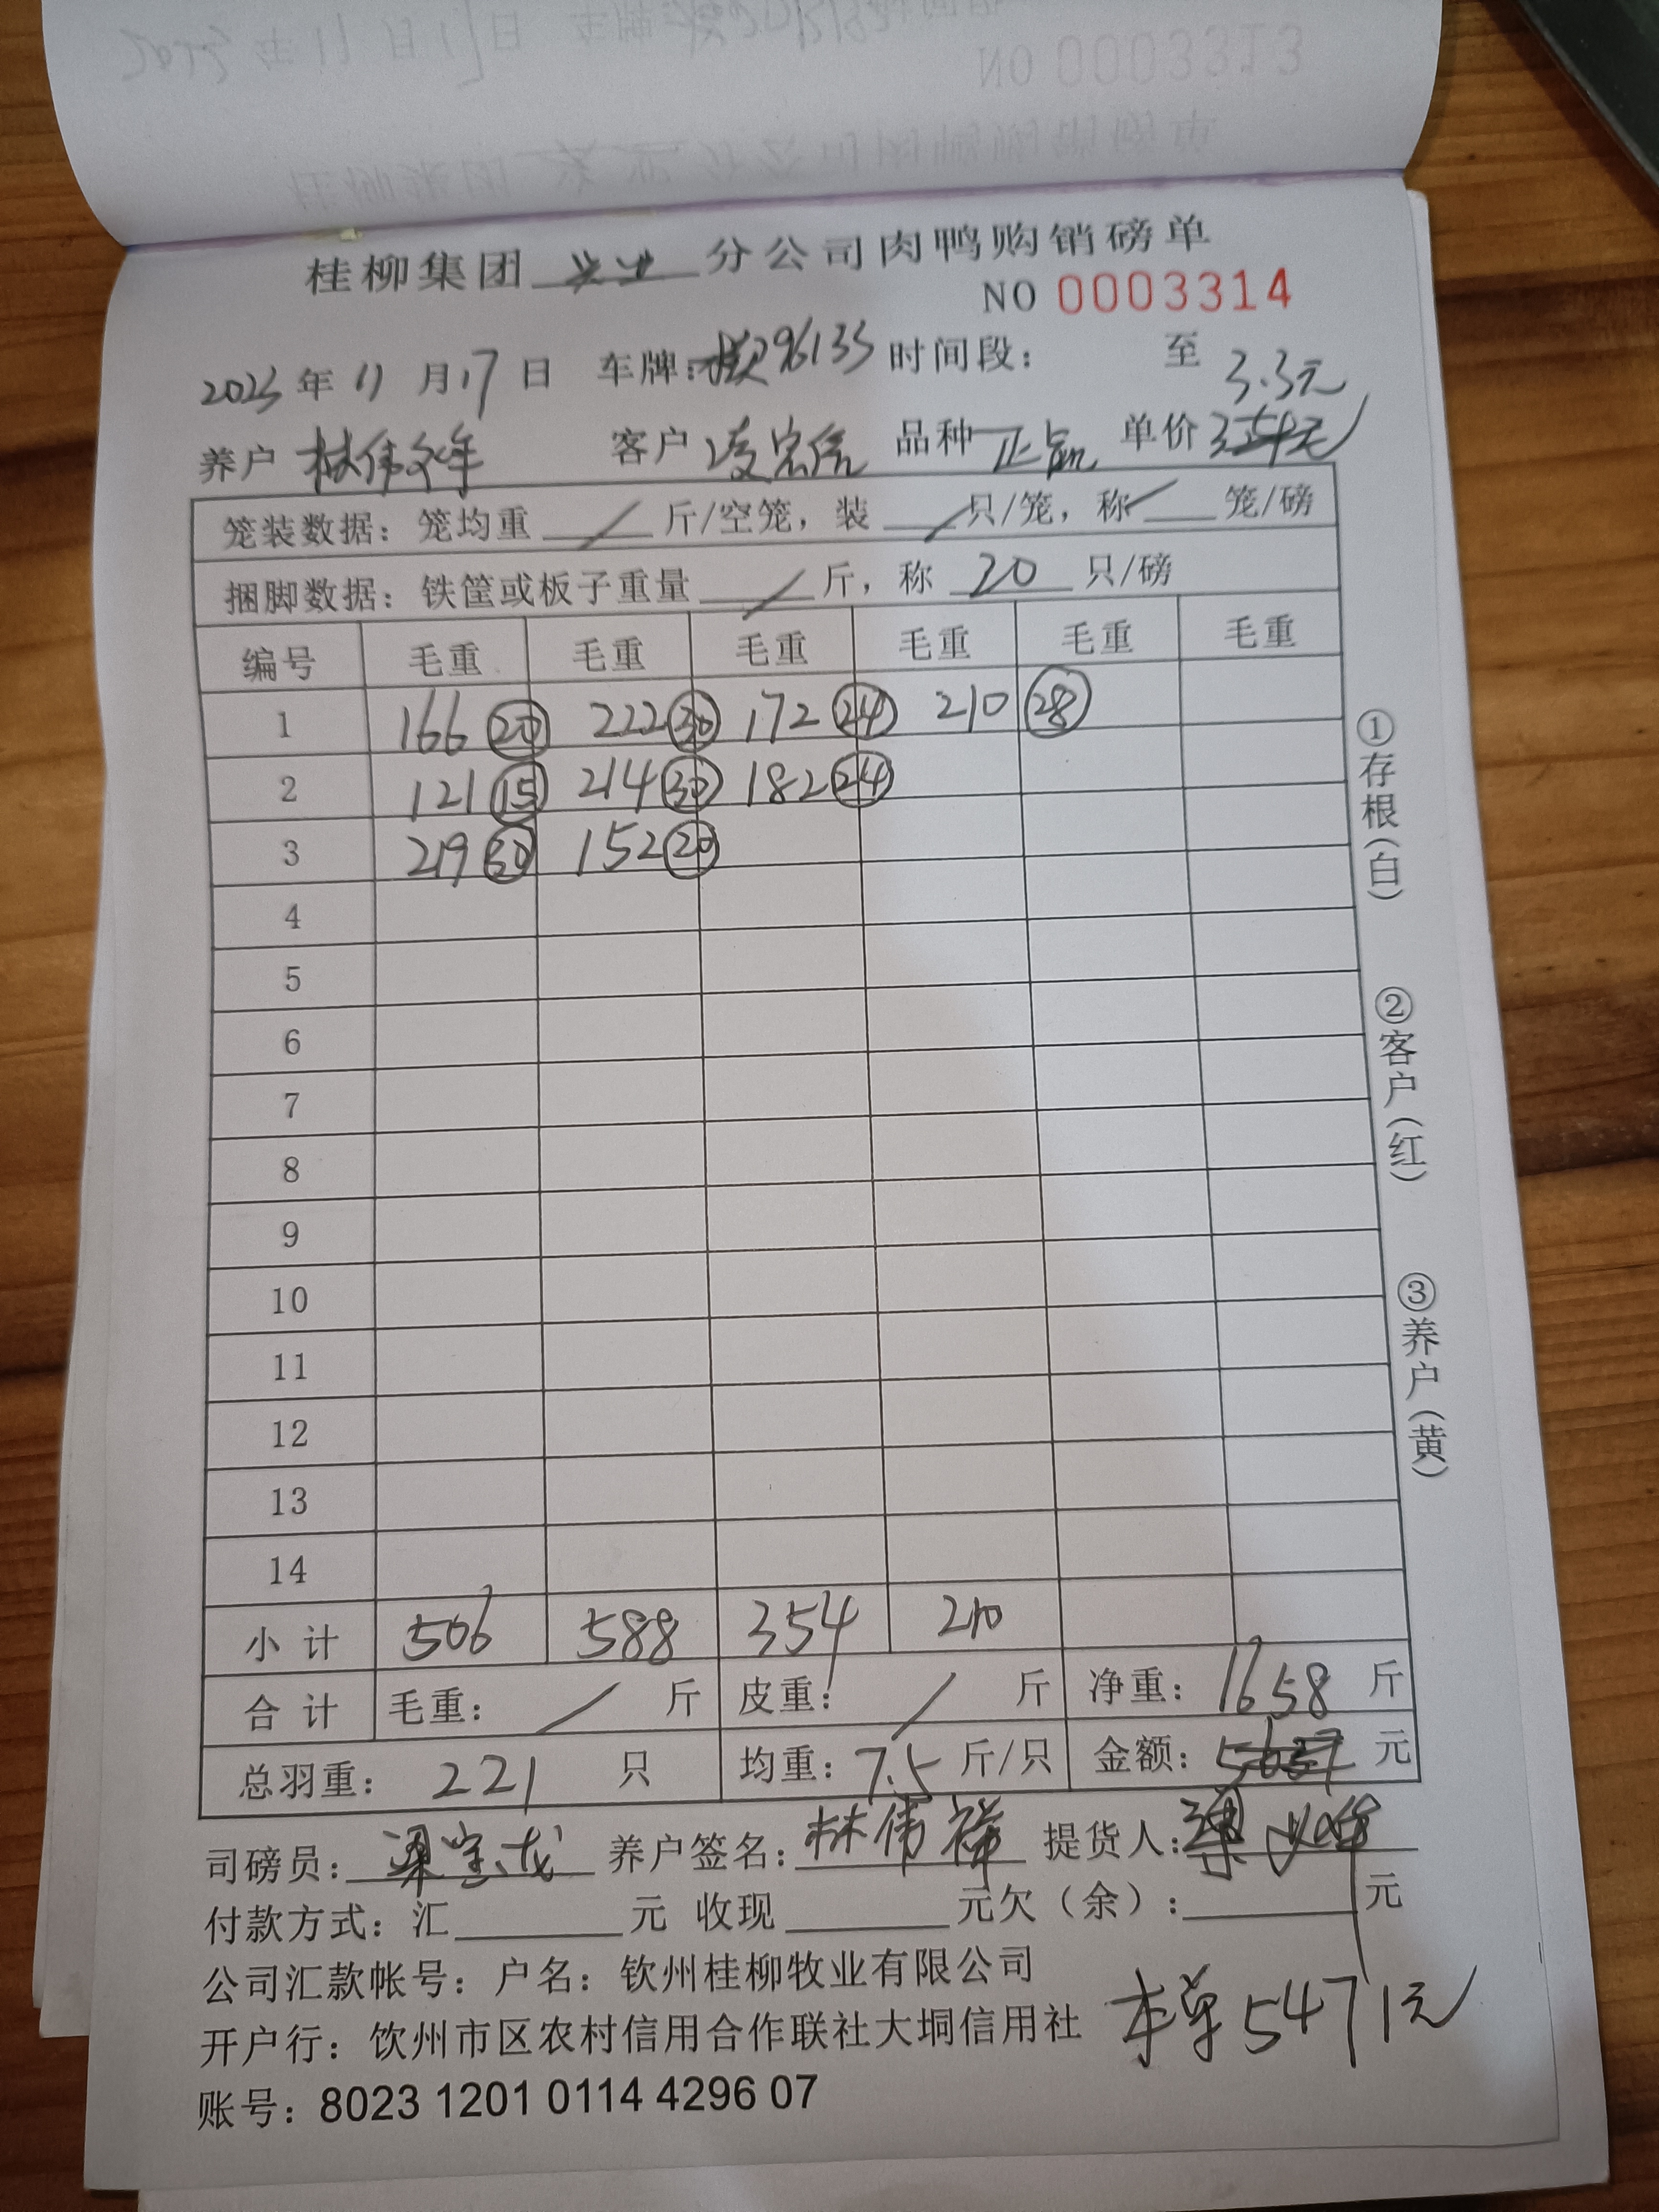 桂柳集团 兴业 分公司肉鸭购销磅单
NO 0003314
2023 年 11 月 17 日 车牌: 96133 时间段: 至
3.3元
养户 林伟 客户 凌宗信 品种 正品 单价
笼装数据: 笼均重 / 斤/空笼, 装 / 只/笼, 称 / 笼/磅
捆脚数据: 铁筐或板子重量 / 斤, 称 20 只/磅
编号 毛重 毛重 毛重 毛重 毛重 毛重
1 166 20 222 30 172 24 210 28
2 121 15 214 30 182 24
3 219 30 152 20
4
5
6
7
8
9
10
11
12
13
14
小计 506 588 354 210
合计 毛重: / 斤 皮重: / 斤 净重: 1658 斤
总羽重: 221 只 均重: 7.5 斤/只 金额: 元
司磅员: 梁宝龙 养户签名: 林伟祥 提货人: 梁
付款方式: 汇 元 收现 元欠(余): 元
公司汇款帐号: 户名: 钦州桂柳牧业有限公司
开户行: 饮州市区农村信用合作联社大垌信用社
本单5471元
账号: 8023 1201 0114 4296 07
①存根(白)
②客户(红)
③养户(黄)